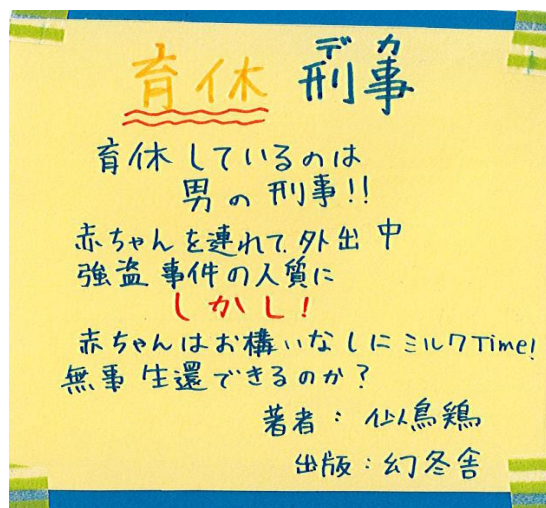 デカ
育休 刑事
育休しているのは
男の刑事!!
赤ちゃんを連れて外出中
強盗事件の人質に
しかし!
赤ちゃんはお構いなしにミルクTime!
無事生還できるのか?
著者:似鳥鶏
出版:幻冬舎